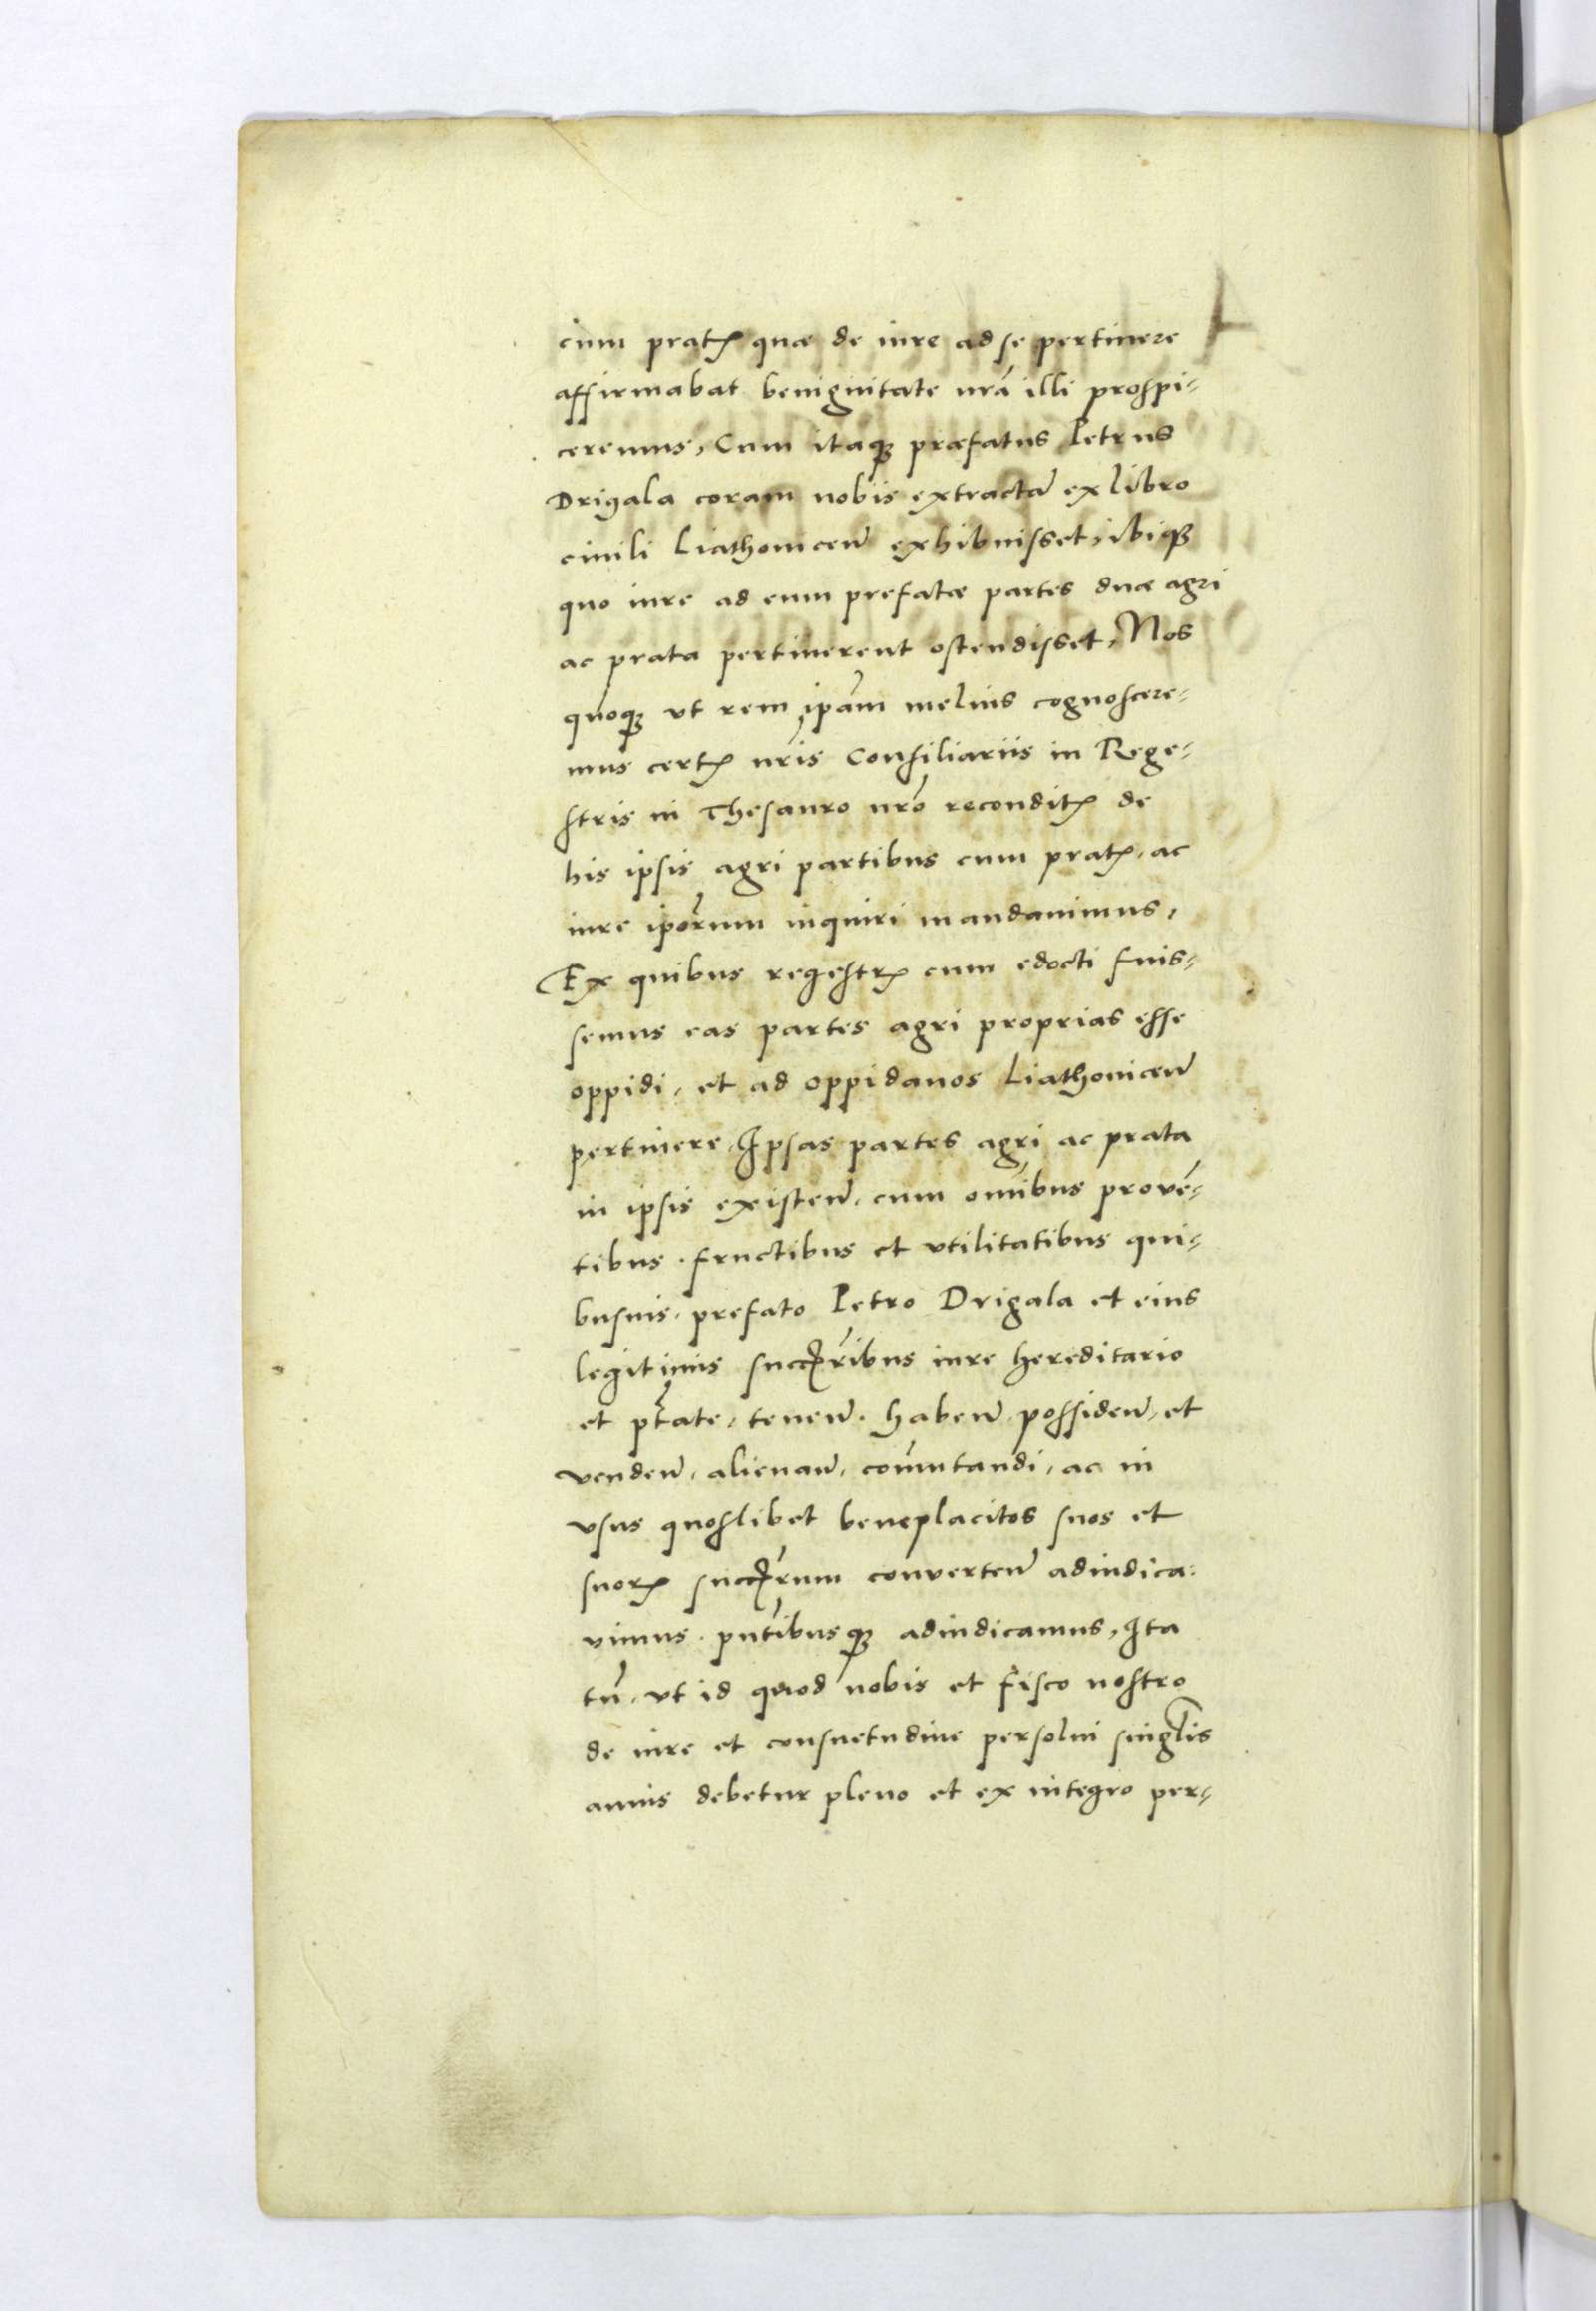 cum pratꝭ quæ de iure ad se pertinere
affirmabat benignitate nrā illi prospi-
ceremus, Cum itaqꝫ præfatus Petrus
Drigala coram nobis extractā ex libro
ciuili Liathoniceñ exhibuisset, ibiqꝫ
quo iure ad eum prefatæ partes duæ agri
ac prata pertinerent ostendisset, Nos
quoqꝫ vt rem ip̄am melius cognoscere-
mus certꝭ nr̄is Consiliariis in Rege-
stris in Thesauro nrō reconditꝭ de
his ipsis agri partibus cum pratꝭ, ac
iure ip̄orum inquiri mandauimus,
Ex quibus regestrꝭ cum edocti fuis-
semus eas partes agri proprias esse
oppidi, et ad oppidanos Liathoniceñ
pertinere, Ipsas partes agri ac prata
in ipsis existeñ, cum om̄ibus provē-
tibus, fructibus et vtilitatibus qui-
busuis, prefato Petro Drigala et eius
legitimis succr̄ibus iure hereditario
et ptāte, teneñ, habeñ, possideñ, et
vendeñ, alienañ, com̄utandi, ac in
vsus quoslibet beneplacitos suos et
suorꝝ succr̄rum converteñ adiudica-
vimus, pn̄tibusqꝫ adiudicamus, Ita
tñ, vt id quod nobis et fisco nostro
de iure et consuetudine persolui singl̄is
annis debetur pleno et ex integro per-